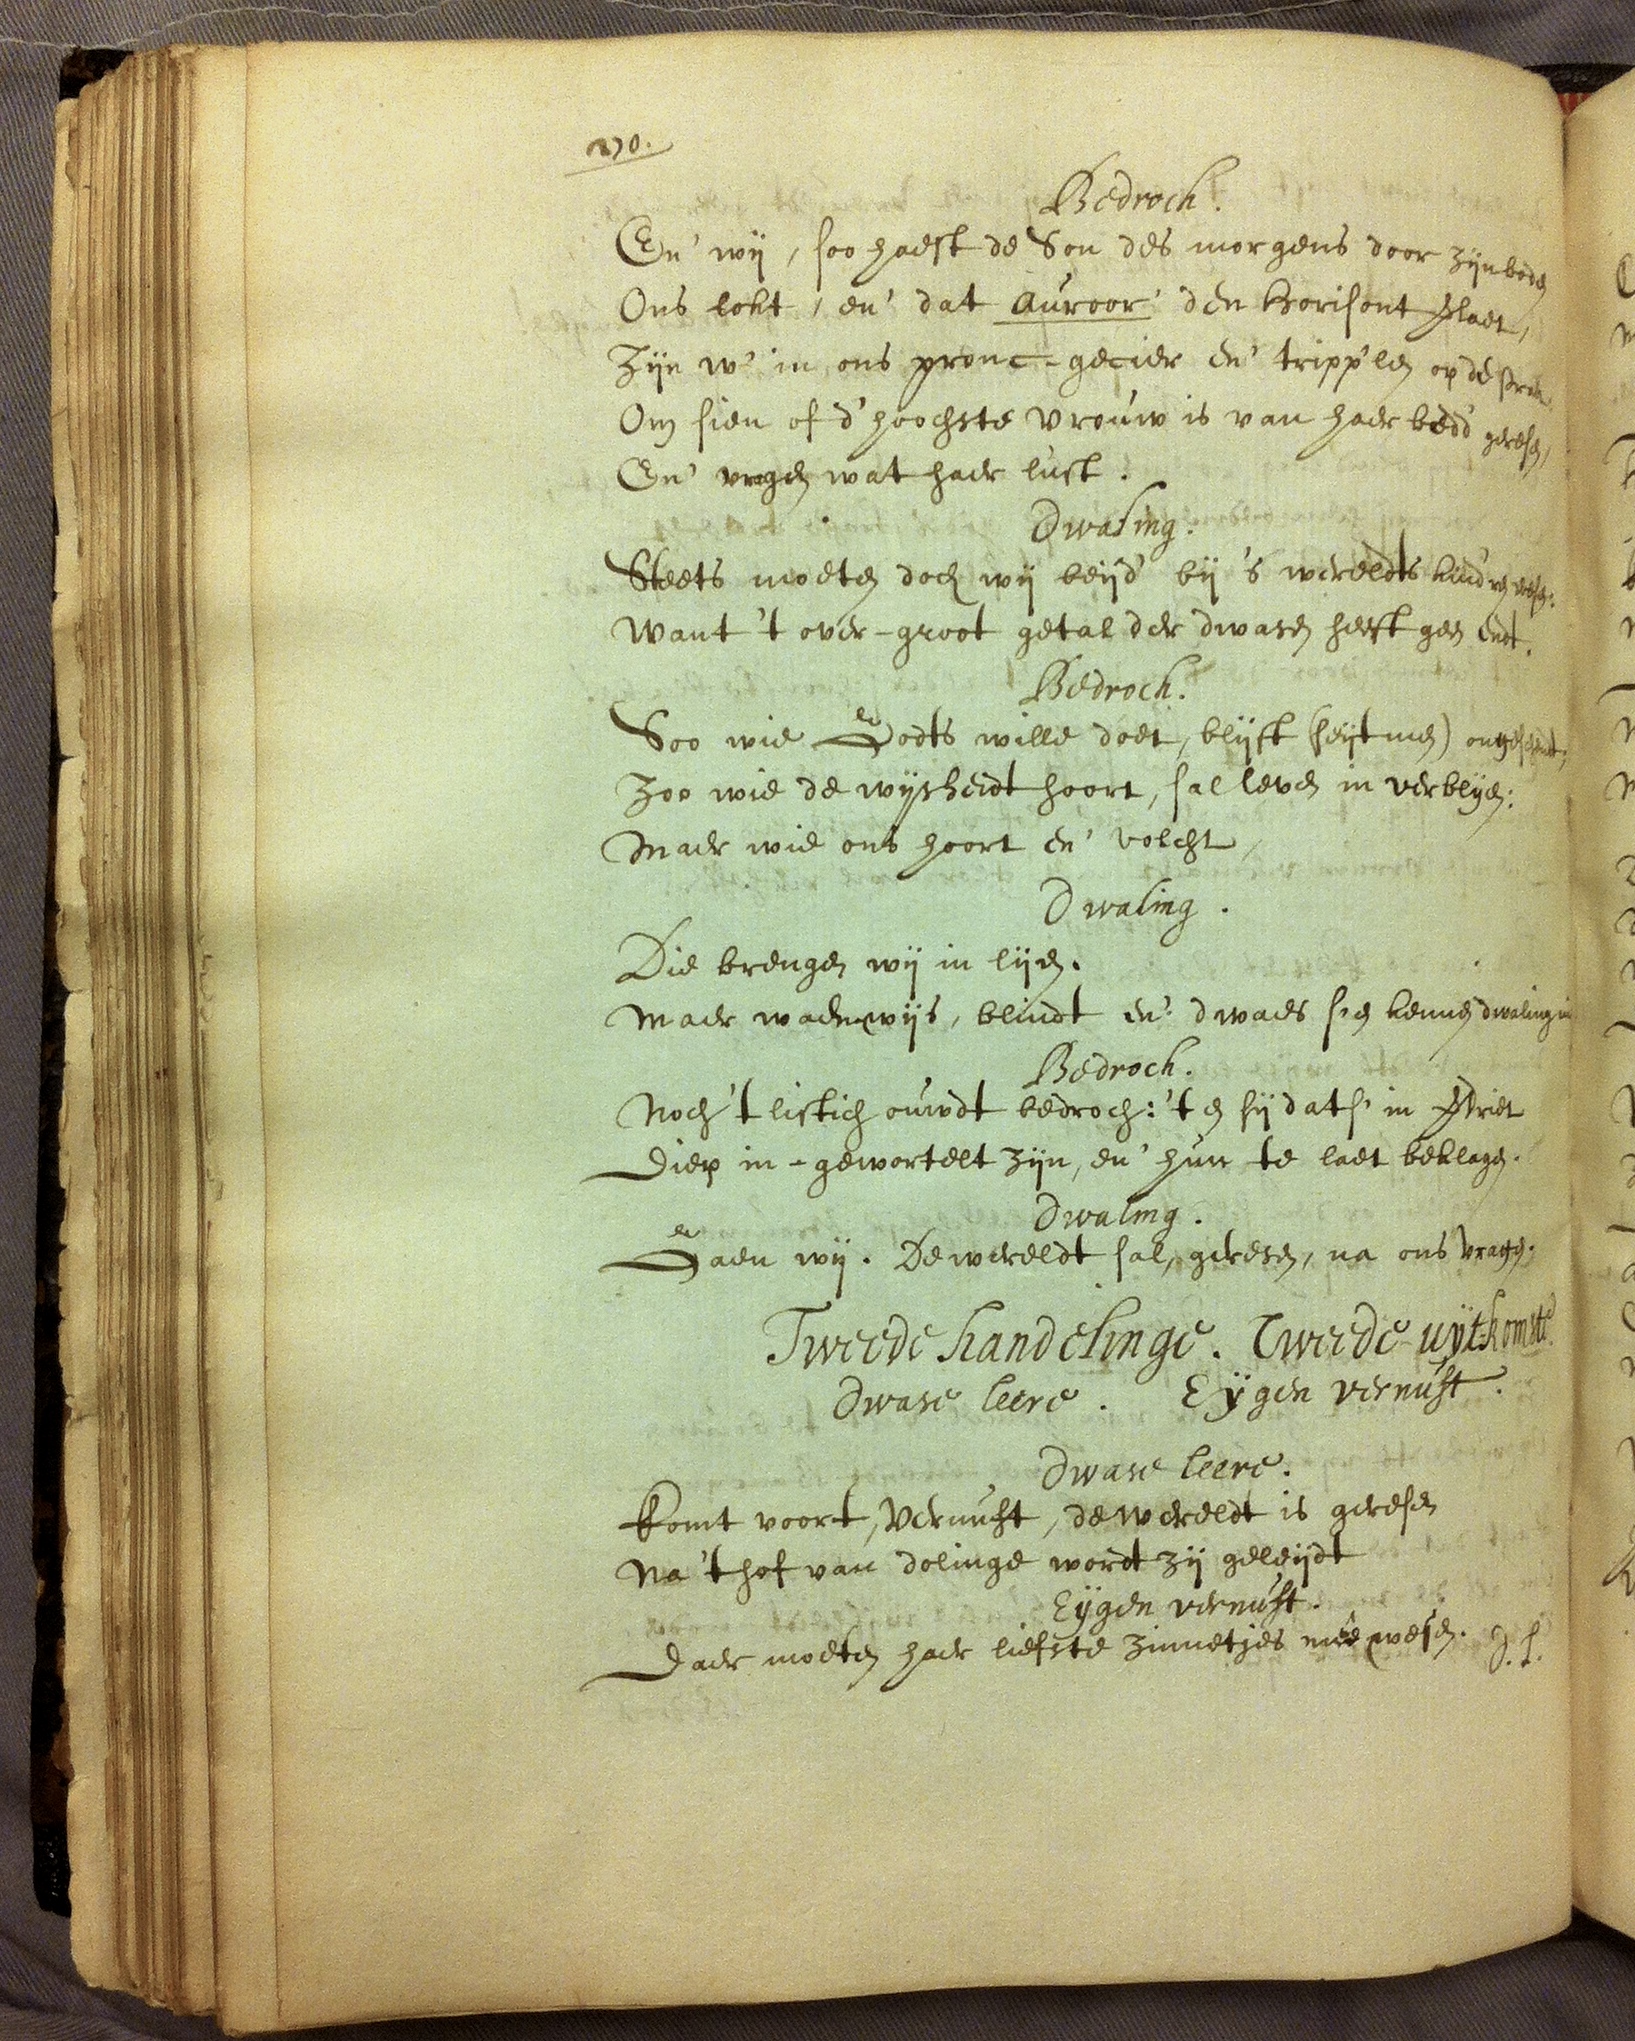 270.
Bedroch.
En' wij, soo haest de Son des morgens door zijn boden
Ons lokt, en' dat Auroor' den Horisont
Zijn w' in ons pronc-gecier en' tripp'len op de
Om sien of d' hoochste vrouw is van haer bedd' geresen,
En' vragen wat haer lust.
Dwaling.
Steets moeten doch wij beijd' bij 's wereldts kind'ren wesen:
Want 't over-groot getal der dwasen heeft geen endt.
Bedroch.
Soo wie Godts wille doet, blijft (seijtmen) ongeschendt;
Zoo wie de wijsheidt hoort, sal leven in verblijen:
Maer wie ons hoort en' volcht,
Dwaling.
Die brengen wij in lijden.
Maer waenwijs, blindt en' dwaes s'en kennen dwaling
Bedroch.
Noch 't listich ouwdt bedroch: 't en sij dats' in
Diep in-gewortelt zijn, en' hun te laet beklagen.
Dwaling.
Gaen wij. De wereldt sal, geresen, na ons vragen.
Tweede handelinge. Tweede uytkomste.
Dwase leere. Eygen vernuft.
Dwase leere.
Komt voort, Vernuft, de wereldt is geresen
Na 't hof van dolinge wordt zij geleijdt
Eygen vernuft.
Daer moeten haer liefste zinnetjes mee wesen.